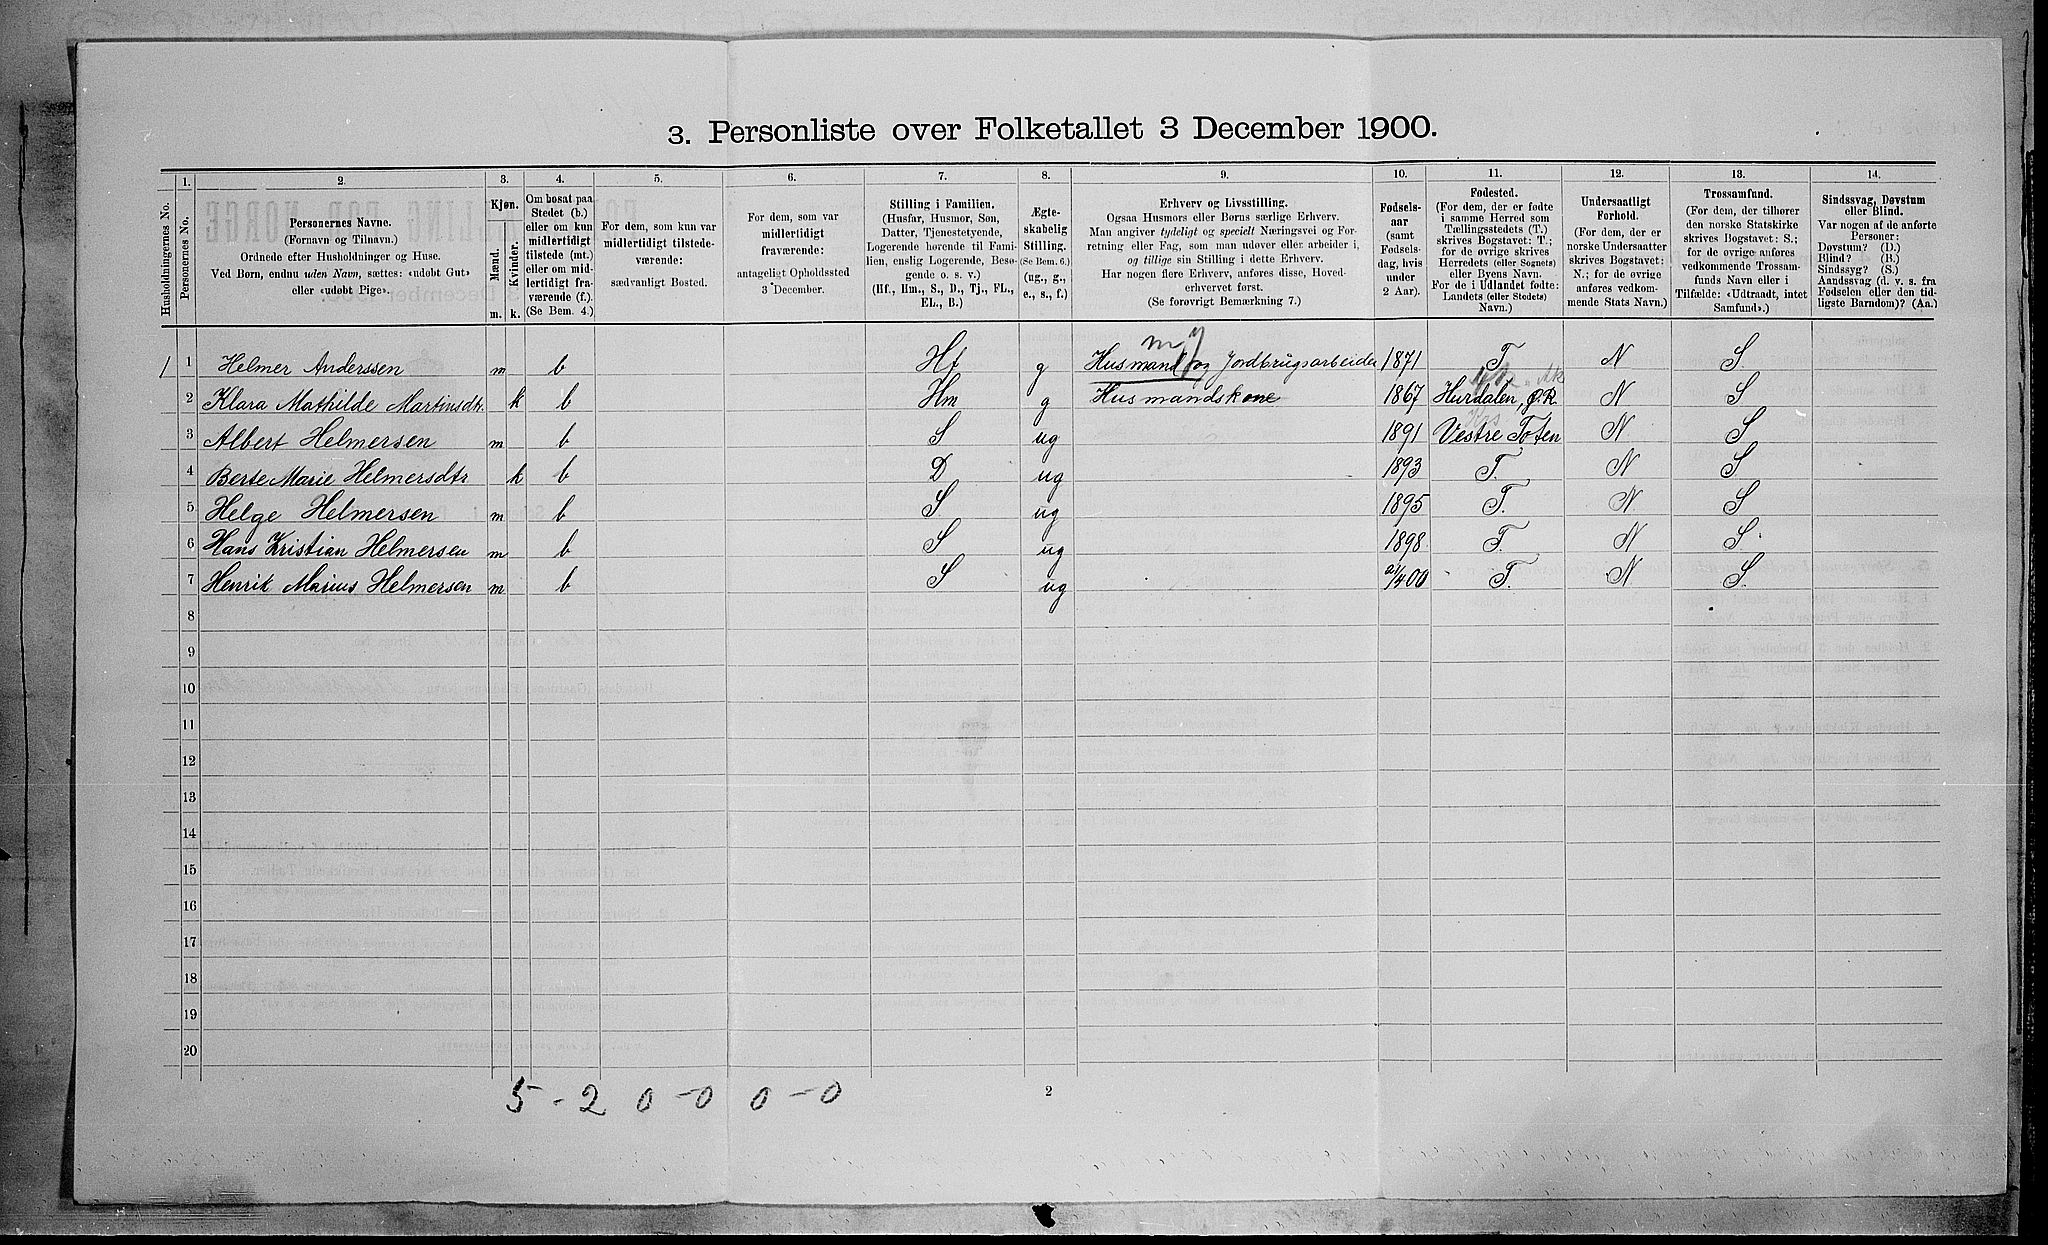 3. Personliste over Folketallet 3 December 1900.
1. 2. 3. 4. 5. 6. 7. 8. 9. 10. 11. 12. 13. 14.
Husholdningernes No.
Personernes No.
Personernes Navne.
(Fornavn og Tilnavn.)
Ordnede efter Husholdninger og Huse.
Ved Børn, endnu uden Navn, sættes: «udøbt Gut»
eller «udøbt Pige».
Kjøn.
Mænd.
Kvinder.
m. k.
Om bosat paa
Stedet (b.)
eller om kun
midlertidigt
tilstede (mt.)
eller om mid-
lertidigt fra-
værende (f.).
(Se Bem. 4.)
For dem, som kun var
midlertidigt tilstede-
værende:
sædvanligt Bosted.
For dem, som var
midlertidigt
fraværende:
antageligt Opholdssted
3 December.
Stilling i Familien.
(Husfar, Husmor, Søn,
Datter, Tjenestetyende,
Logerende hørende til Fami-
lien, enslig Logerende, Besø-
gende o. s. v.)
(Hf., Hm., S., D., Tj., FL.,
EL., B.)
Ægte-
skabelig
Stilling.
(Se Bem. 6.)
(ug., g.,
e., s., f.)
Erhverv og Livsstilling.
Ogsaa Husmors eller Børns særlige Erhverv.
Man angiver tydeligt og specielt Næringsvei og For-
retning eller Fag, som man udøver eller arbeider i,
og tillige sin Stilling i dette Erhverv.
Har nogen flere Erhverv, anføres disse, Hoved-
erhvervet først.
(Se forøvrigt Bemærkning 7.)
Fødsels-
aar
(samt
Fødsels-
dag, hvis
under
2 Aar).
Fødested.
(For dem, der er fødte
i samme Herred som
Tællingsstedets (T.)
skrives Bogstavet: T.;
for de øvrige skrives
Herredets (eller Sognets)
eller Byens Navn.
For de i Udlandet fødte:
Landets (eller Stedets)
Navn.)
Undersaatligt
Forhold.
(For dem, der er
norske Undersaatter
skrives Bogstavet:
N.; for de øvrige
anføres vedkom-
mende Stats Navn.)
Trossamfund.
(For dem, der tilhører
den norske Statskirke
skrives Bogstavet: S.;
for de øvrige anføres
vedkommende Trossam-
funds Navn eller i
Tilfælde: «Udtraadt, intet
Samfund».)
Sindssvag, Døvstum
eller Blind.
Var nogen af de anførte
Personer:
Døvstum? (D.)
Blind? (B.)
Sindssyg? (S.)
Aandssvag (d. v. s. fra
Fødselen eller den tid-
ligste Barndom)? (Aa.)
1 1 Helmer Anderssen m b Hf g Husmand og Jordbrugsarbeider 1871 T N S
2 Klara Mathilde Martinsdtr. k b Hm g Husmandskone 1867 Hurdalen, ØR. N S
3 Albert Helmersen m b S ug 1891 Vestre Toten N. S
4 Berte Marie Helmersdtr k b D ug 1893 T. N S
5 Helge Helmersen m b S ug 1895 T. N. S
6 Hans Kristian Helmersen m b S ug 1898 T. N S.
7 Henrik Marius Helmersen m b S ug 21/4 00 T. N S.
8
9
10
11
12
13
14
15
16
17
18
19
20
5 - 2 0 - 0 0 - 0
2